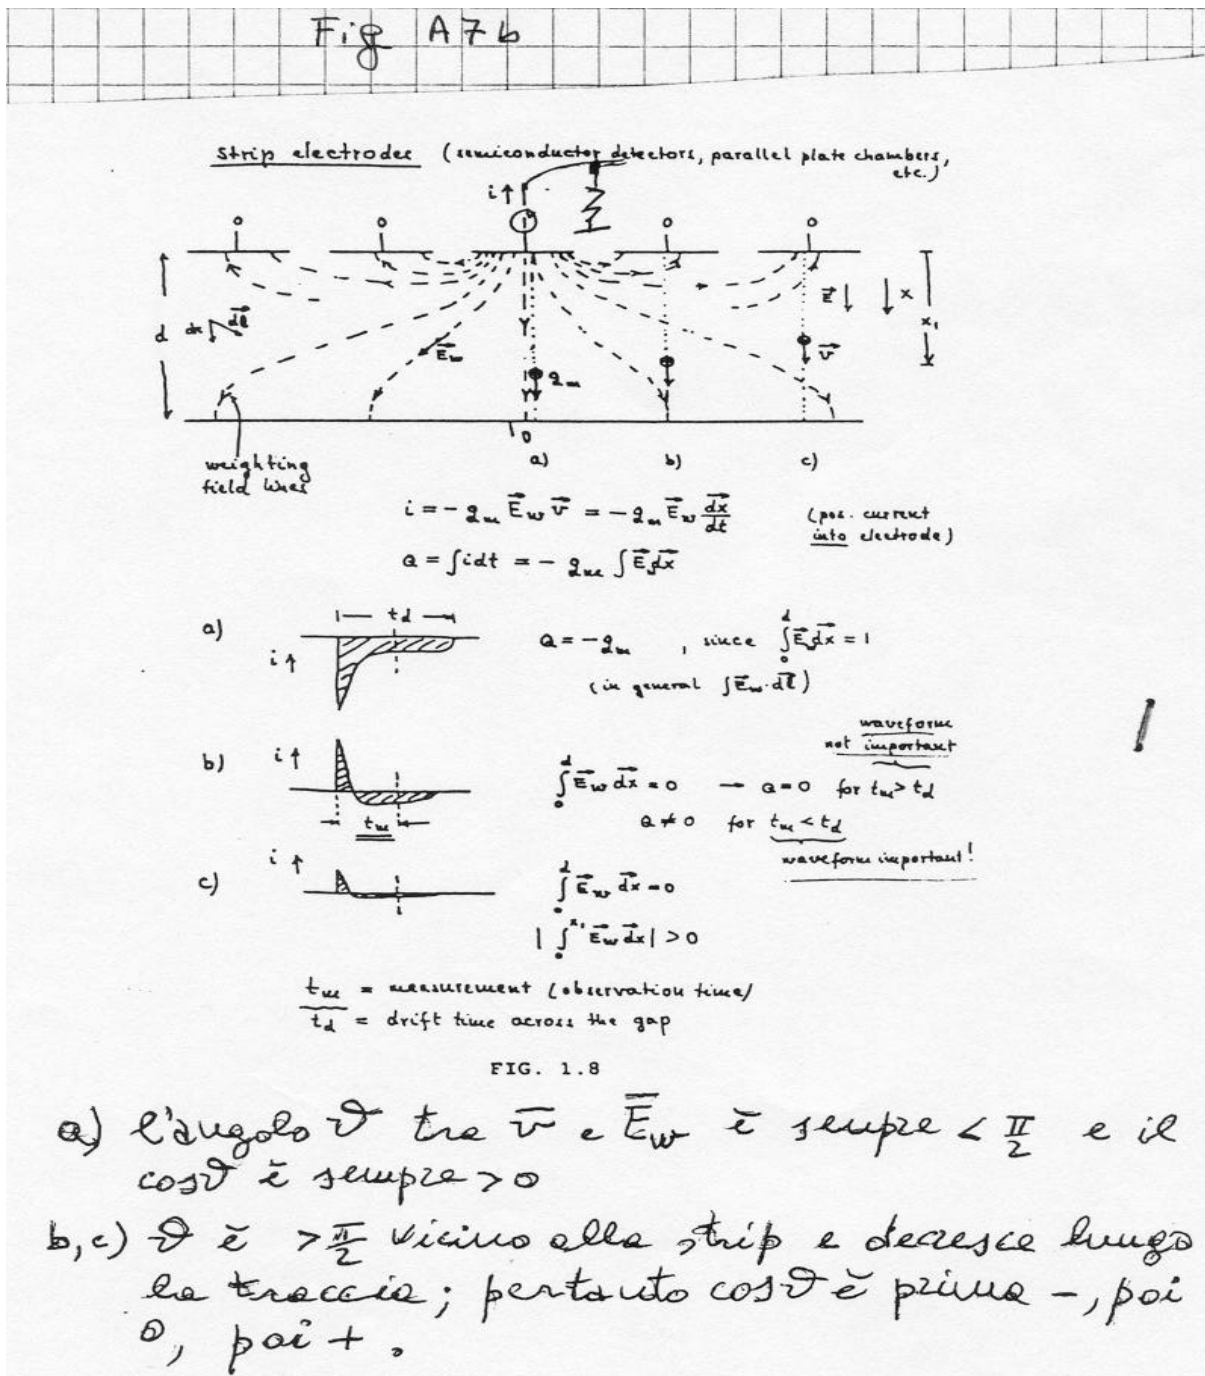 Fig A7b
strip electrodes (semiconductor detectors, parallel plate chambers, etc.)
i↑
o o o o
d dx dl E_w q_m E x x₁ v
weighting
field lines
o
a) b) c)
i = - q_m E_w v = - q_m E_w dx/dt (pos. current
into electrode)
Q = ∫ i dt = - q_m ∫ E dx
a) i↑ |— t_d —| Q = - q_m , since ∫₀ᵈ E_w dx = 1
(in general ∫ E_w · dl)
waveform
not important
b) i↑ ∫₀ᵈ E_w dx = 0 → Q = 0 for t_m > t_d
t_m Q ≠ 0 for t_m < t_d
waveform important!
c) i↑ ∫₀ᵈ E_w dx = 0
| ∫₀^x₁ E_w dx | > 0
t_m = measurement (observation time)
t_d = drift time across the gap
FIG. 1.8
a) l'angolo ϑ tra v e E_w è sempre < π/2 e il
cosϑ è sempre > 0
b,c) ϑ è > π/2 vicino alla strip e decresce lungo
la traccia; pertanto cosϑ è prima -, poi
0, poi + .